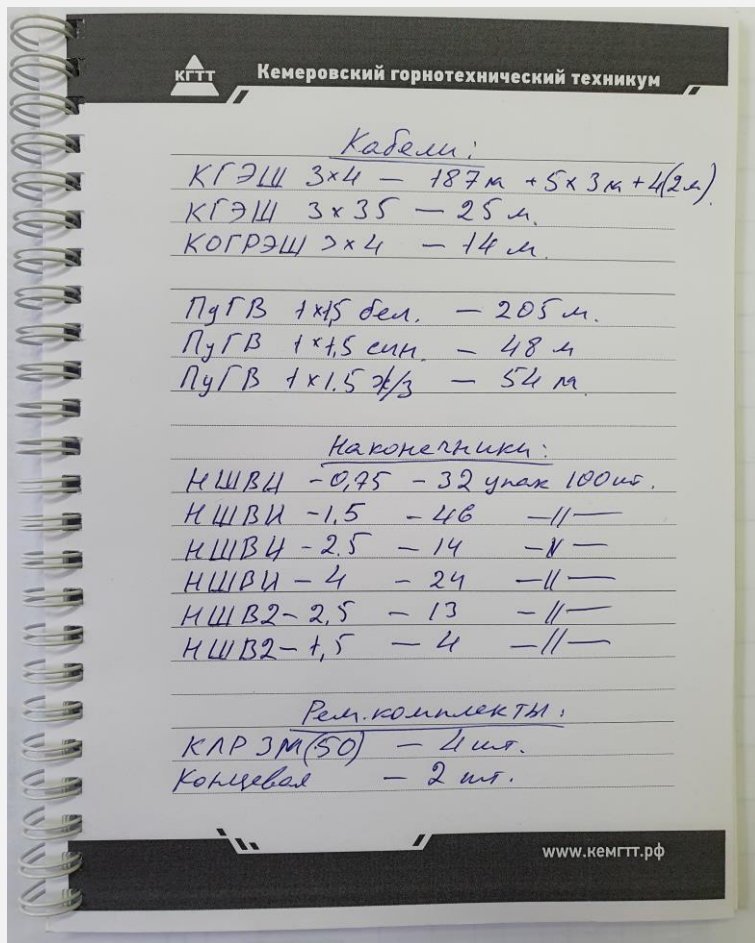 КГТТ
Кемеровский горнотехнический техникум
Кабели:
КГЭШ 3×4 — 187м +5×3м+4(2м).
КГЭШ 3×35 — 25 м.
КОГРЭШ 3×4 — 14 м.
ПуГВ 1×1,5 бел. — 205 м.
ПуГВ 1×1,5 син. — 48 м
ПуГВ 1×1.5 ж/з — 54 м.
Наконечники:
НШВИ -0,75 - 32 упак 100шт.
НШВИ -1.5 - 46 —//—
НШВИ - 2.5 - 14 —//—
НШВИ - 4 - 24 —//—
НШВ2- 2,5 - 13 —//—
НШВ2- 1,5 - 4 —//—
Рем.комплекты:
КЛР 3М(50) — 4 шт.
Концевая — 2 шт.
www.кемгтт.рф